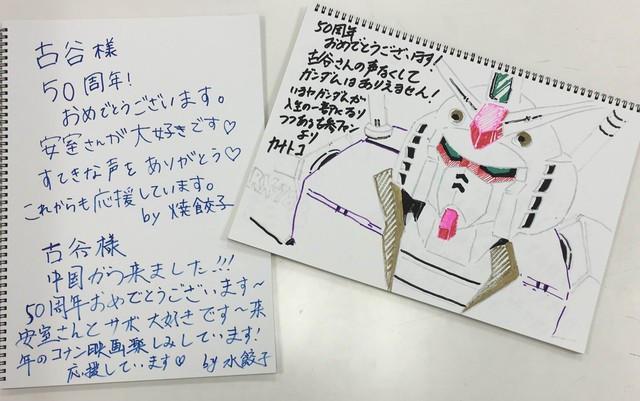 古谷様
50周年!
おめでとうございます。
安室さんが大好きです♡
すてきな声をありがとう♡
これからも応援しています。
by 焼餃子
古谷様
中国から来ました!!!
50周年おめでとうございます~
安室さんとサボ大好きです~来
年のコナン映画楽しみしています!
応援しています♡ by 水餃子
50周年
おめでとうございます!
古谷さんの声なくして
ガンダムはありえません!
いまやガンダムが
人生の一部になり
つつある古参ファン
より